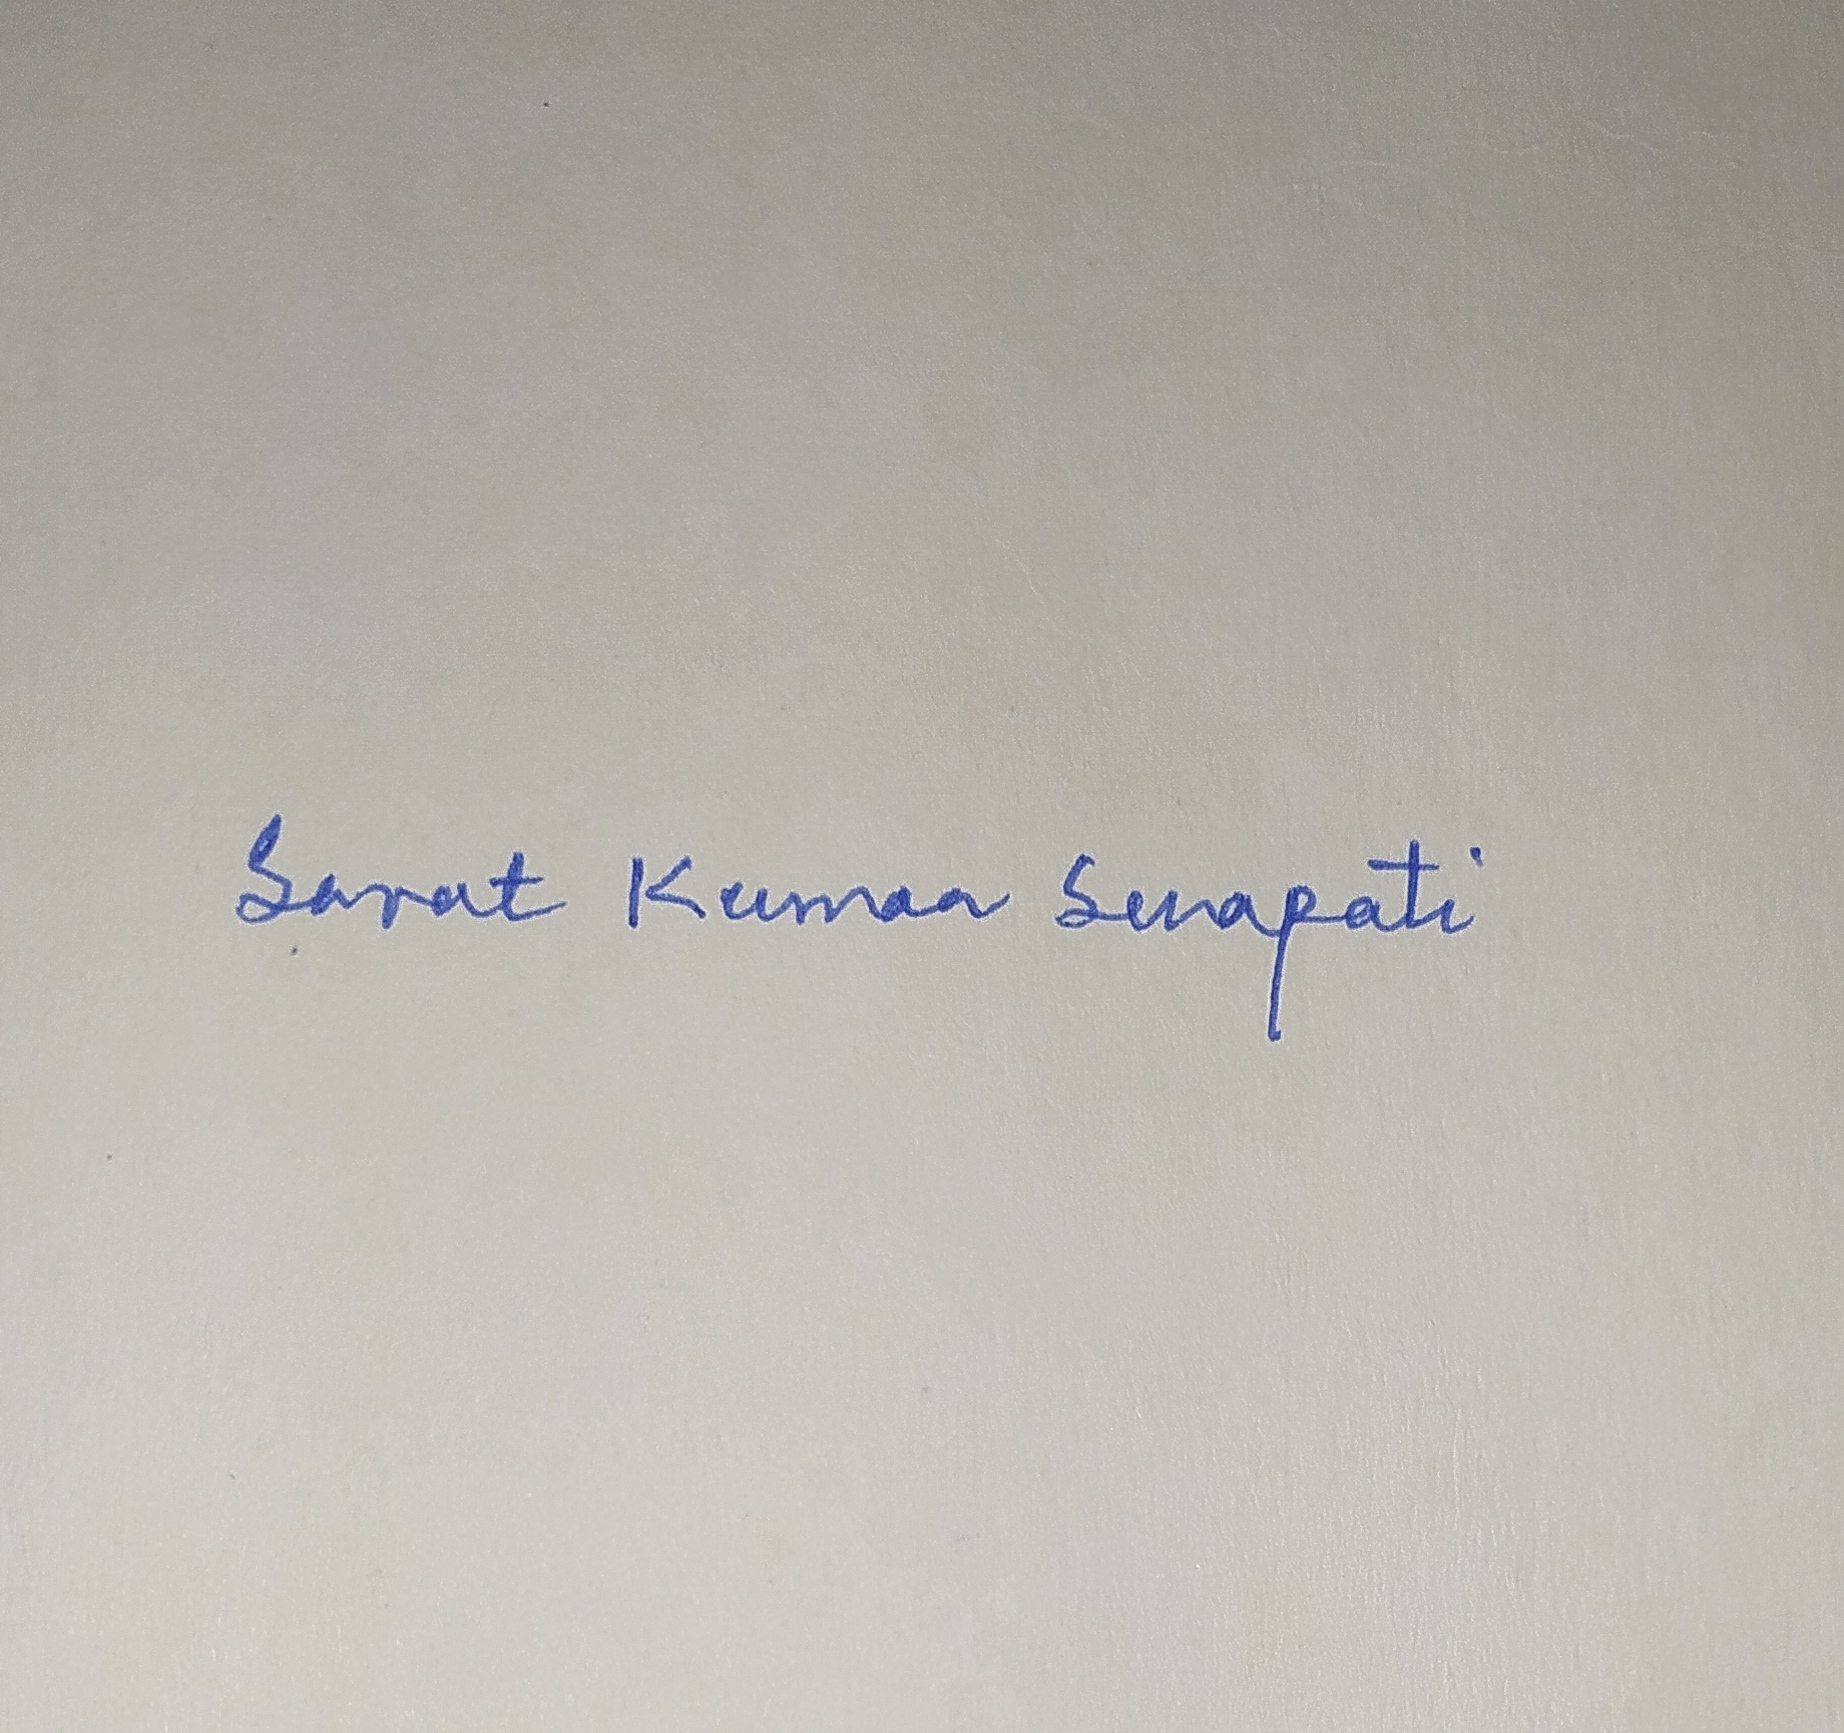 Sarat Kumar Senapati